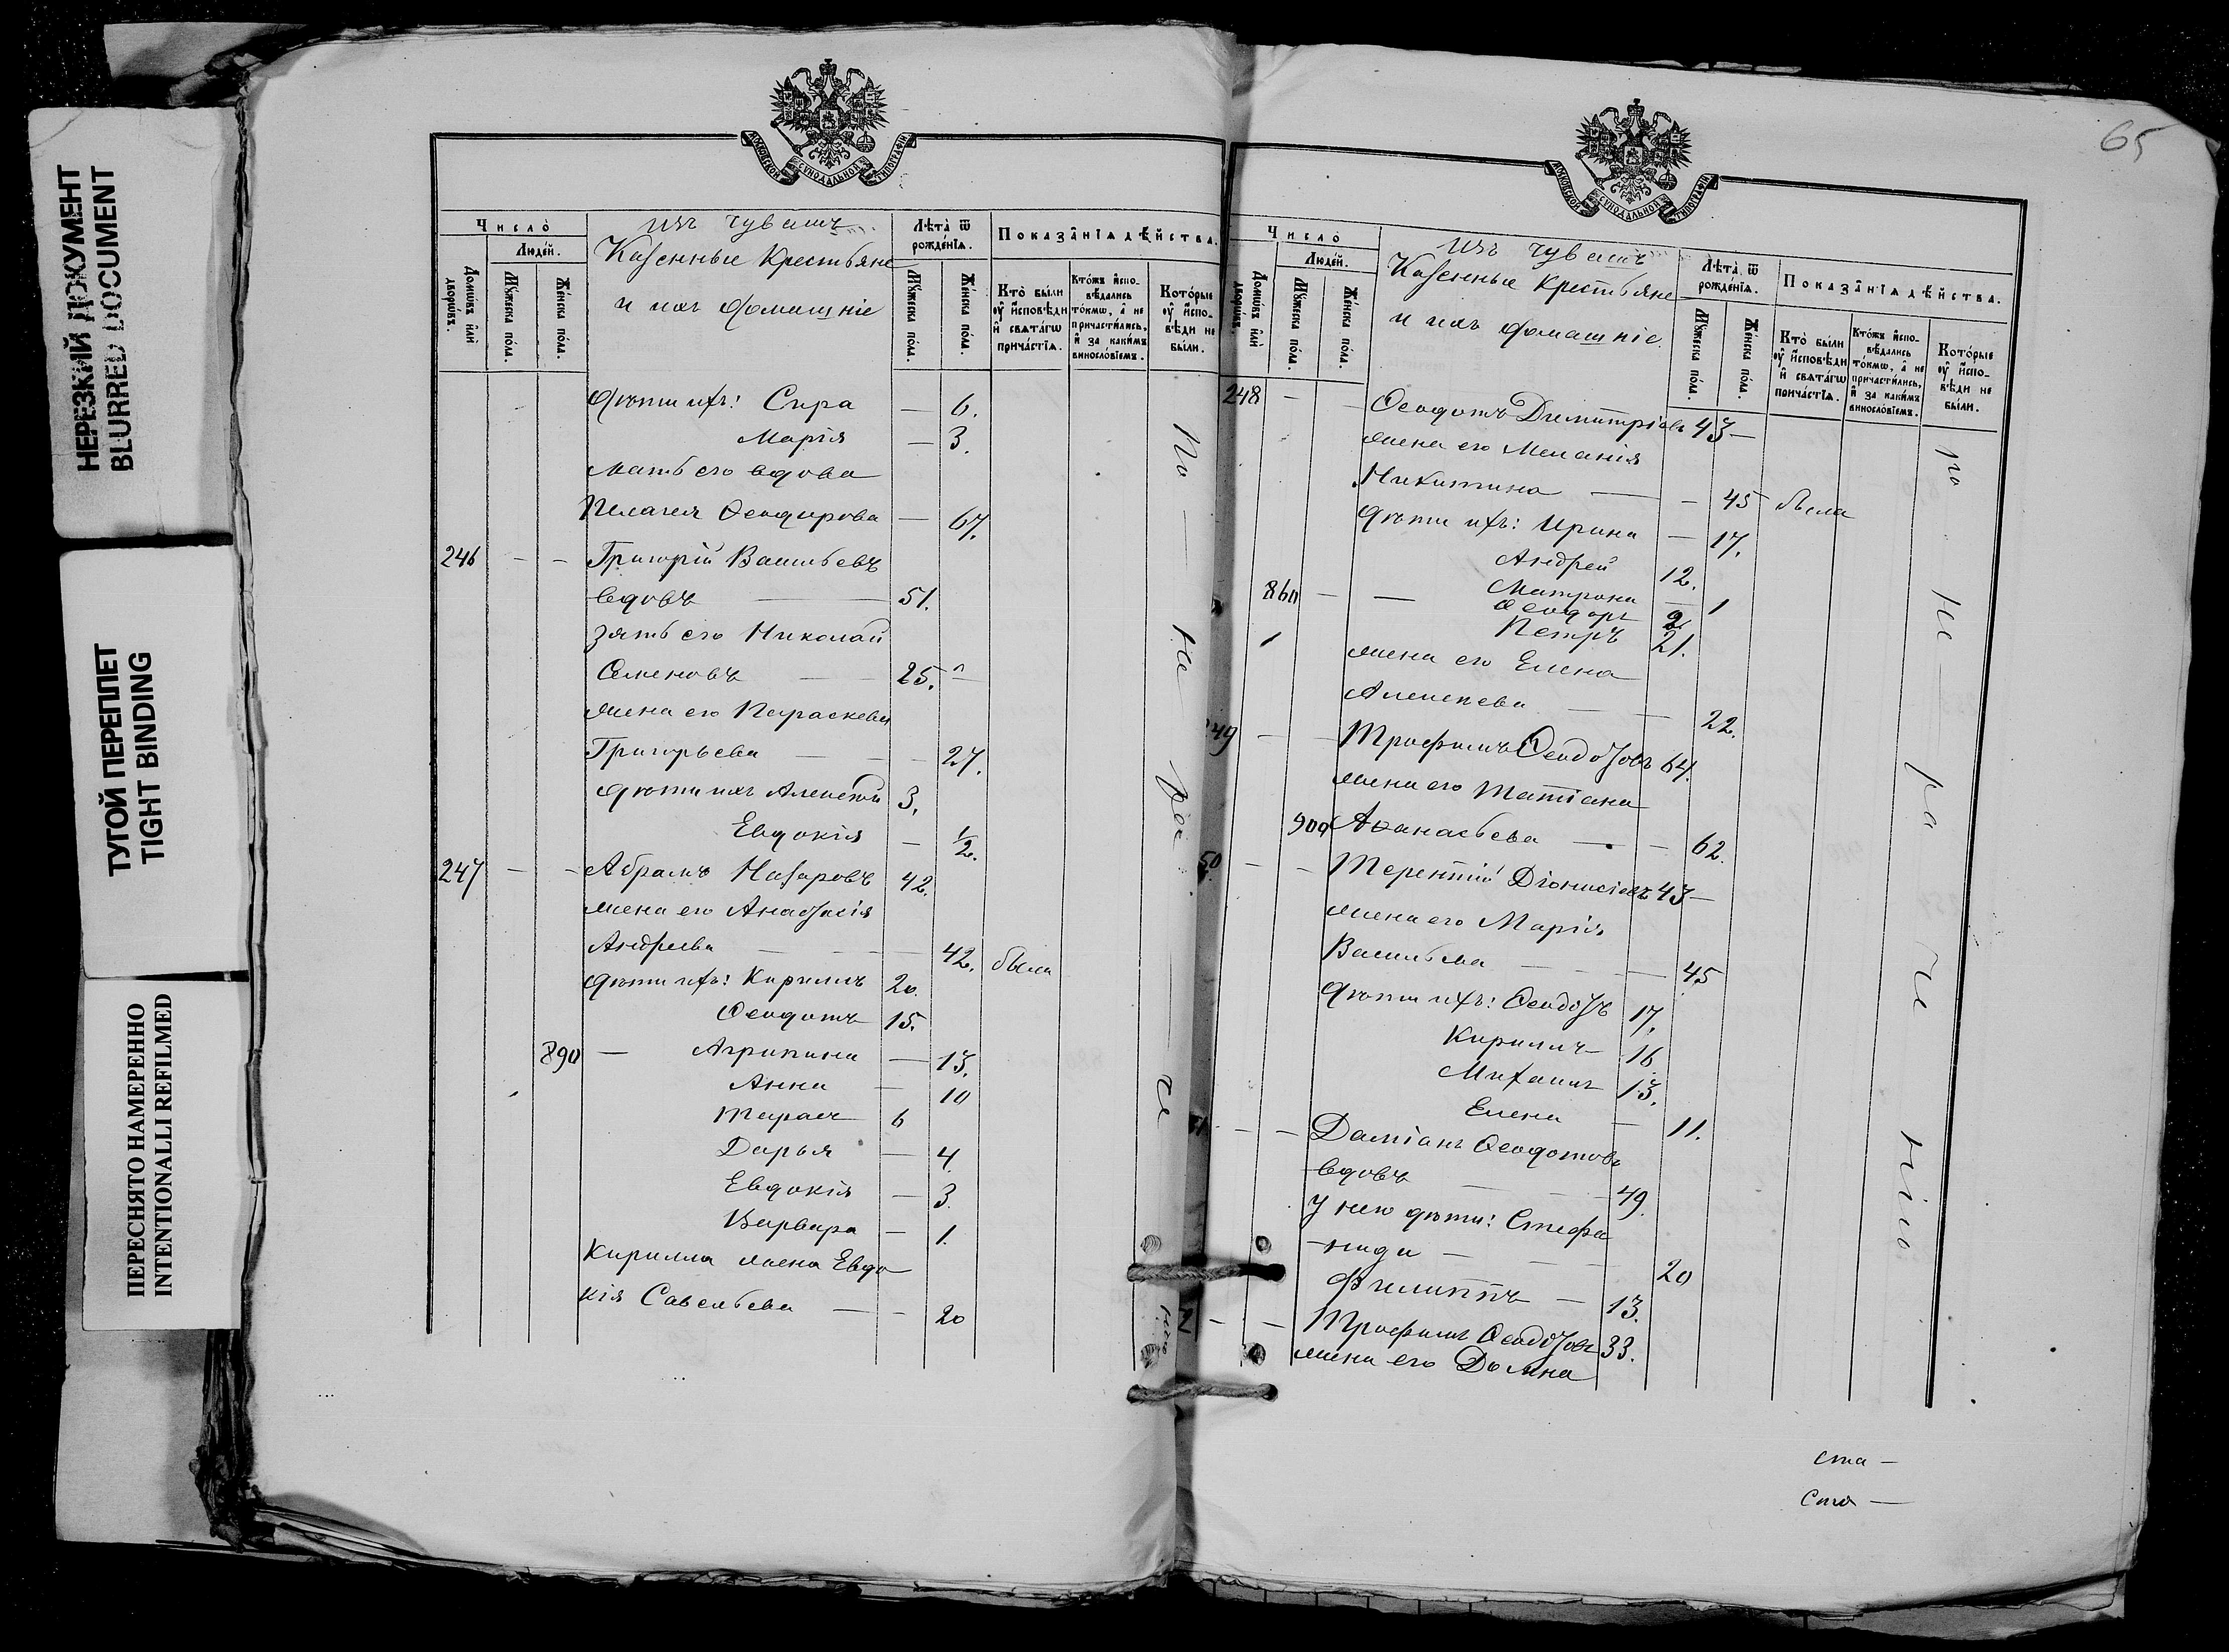 НЕРЕЗКИЙ ДОКУМЕНТ
BLURRED DOCUMENT
ТУГОЙ ПЕРЕПЛЕТ
TIGHT BINDING
ПЕРЕСНЯТО НАМЕРЕННО
INTENTIONALLI REFILMED
МОСКОВСКОЙ СУНОДАЛЬНОЙ ТИПОГРАФІИ
Число
Людей.
Домѡвъ или дворѡвъ.
Мꙋжеска пола.
Женска пола.
изъ чувашъ
Казенные Крестьяне
и ихъ домашніе
Лѣта ѿ рожденїѧ.
Мꙋжеска пола.
Женска пола.
Показанїѧ дѣйства.
Кто были оу҆ исповѣди и свѧтагѡ причастїѧ.
Ктожъ исповѣдались токмѡ, а не причастились, и за какимъ винословїемъ.
Которые оу҆ исповѣди не были.
дѣти ихъ: Сира — 6.
Марія — 3.
мать его вдова
Пелагея Ѳеодорова — 67.
246 — — Григорій Васильевъ
вдовъ — 51.
зять его Николай
Семеновъ — 25. —
жена его Параскева
Григорьева — 27.
дѣти ихъ Алексѣй 3.
Евдокія — 1/2.
247 — — Абрамъ Назаровъ 42.
жена его Анастасія
Андреева — 42. была
дѣти ихъ: Кириллъ 20.
Ѳеодотъ 15.
890 — Агрипина — 13.
Анна — 10
Тарасъ 6
Дарья — 4.
Евдокія — 3.
Варвара — 1.
Кирилла жена Евдо
кія Савельева — 20
По — не — ра — че
65
МОСКОВСКОЙ СУНОДАЛЬНОЙ ТИПОГРАФІИ
Число
Людей.
Домѡвъ или дворѡвъ.
Мꙋжеска пола.
Женска пола.
изъ чувашъ
Казенные Крестьяне
и ихъ домашніе.
Лѣта ѿ рожденїѧ.
Мꙋжеска пола.
Женска пола.
Показанїѧ дѣйства.
Кто были оу҆ исповѣди и свѧтагѡ причастїѧ.
Ктожъ исповѣдались токмѡ, а не причастились, и за какимъ винословїемъ.
Которые оу҆ исповѣди не были.
248 — — Ѳеодотъ Димитріевъ 43 —
жена его Меланія
Никитина — — 45 была
дѣти ихъ: Ирина — 17.
Андрей 12.
860 — — Матрона — 1
Ѳеодоръ 2.
1 Петръ 21.
жена его Елена
Алексеева — — 22.
249 — — Трофимъ Ѳеодоровъ 64.
жена его Татіана
900 Аѳанасьева — — 62.
50 — — Терентій Діонисіевъ 43 —
жена его Марія
Васильева — 45
дѣти ихъ: 17.
Кириллъ 16.
Михаилъ 13.
Елена — 11.
— — Даміанъ Ѳеодотовъ
вдовъ — 49.
у него дѣти: Стефа
нида — 20
Филиппъ — 13.
— — Трофимъ 33.
жена его Домна
не — ра — че — нію
ста —